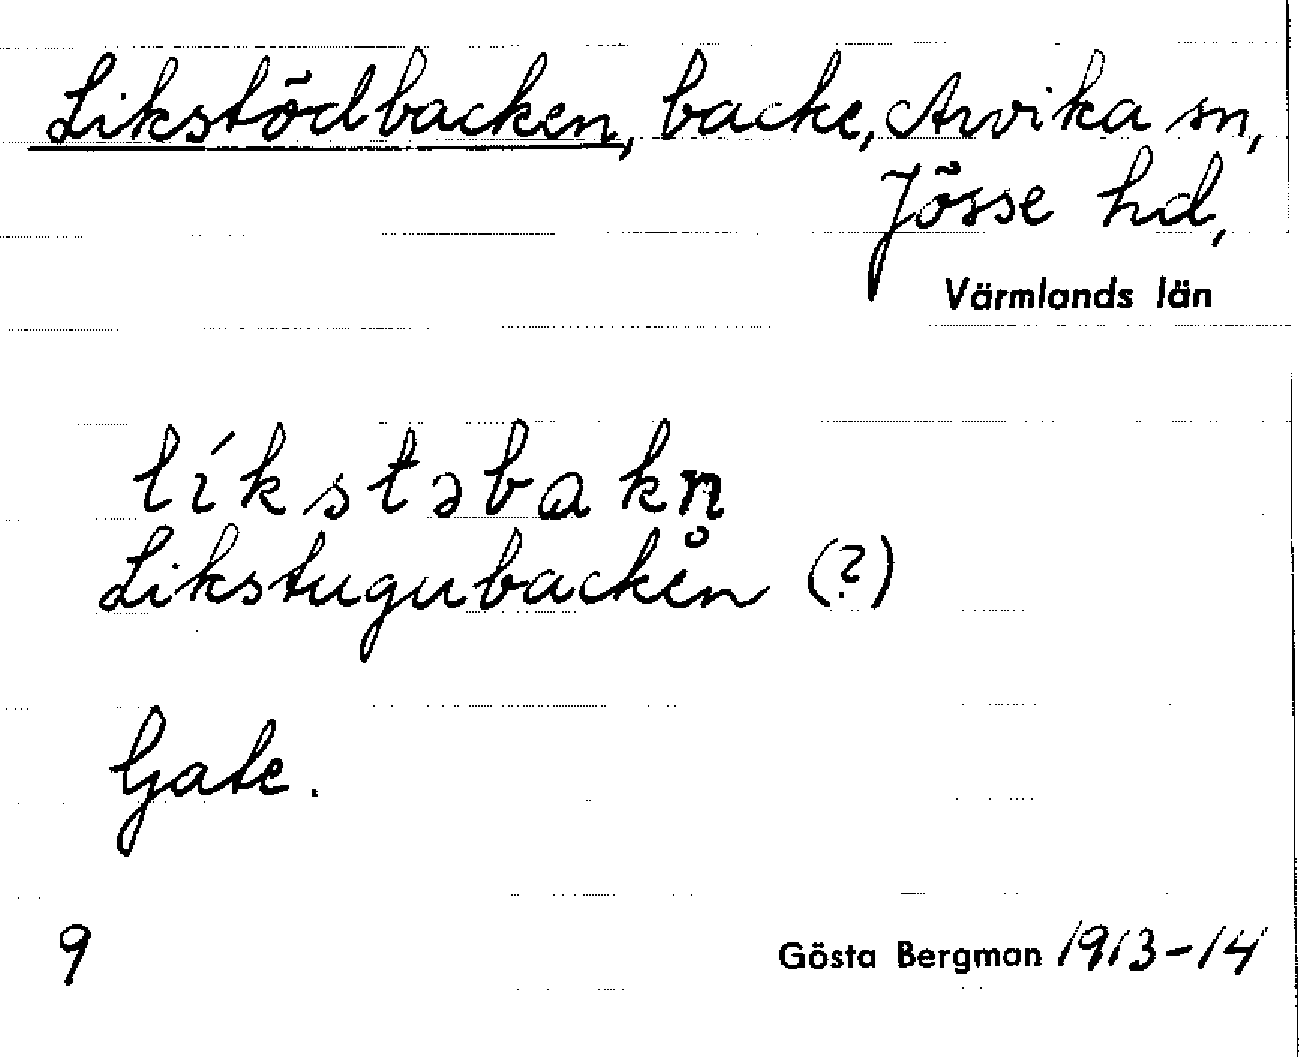 Likstödbacken, backe, Arvika sn,
Jösse hd,
Värmlands län
líkstəbakn̥
Likstugubacken (?)
Gate.
9 Gösta Bergman 1913-14